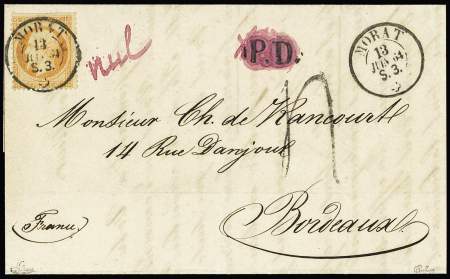 MORAT
13
JUIN 64
S. 3.
nul
P.D.
MORAT
13
JUIN 64
S. 3.
Monsieur Ch. de Rancourt
14 Rue Danjoux
Bordeaux
(France)